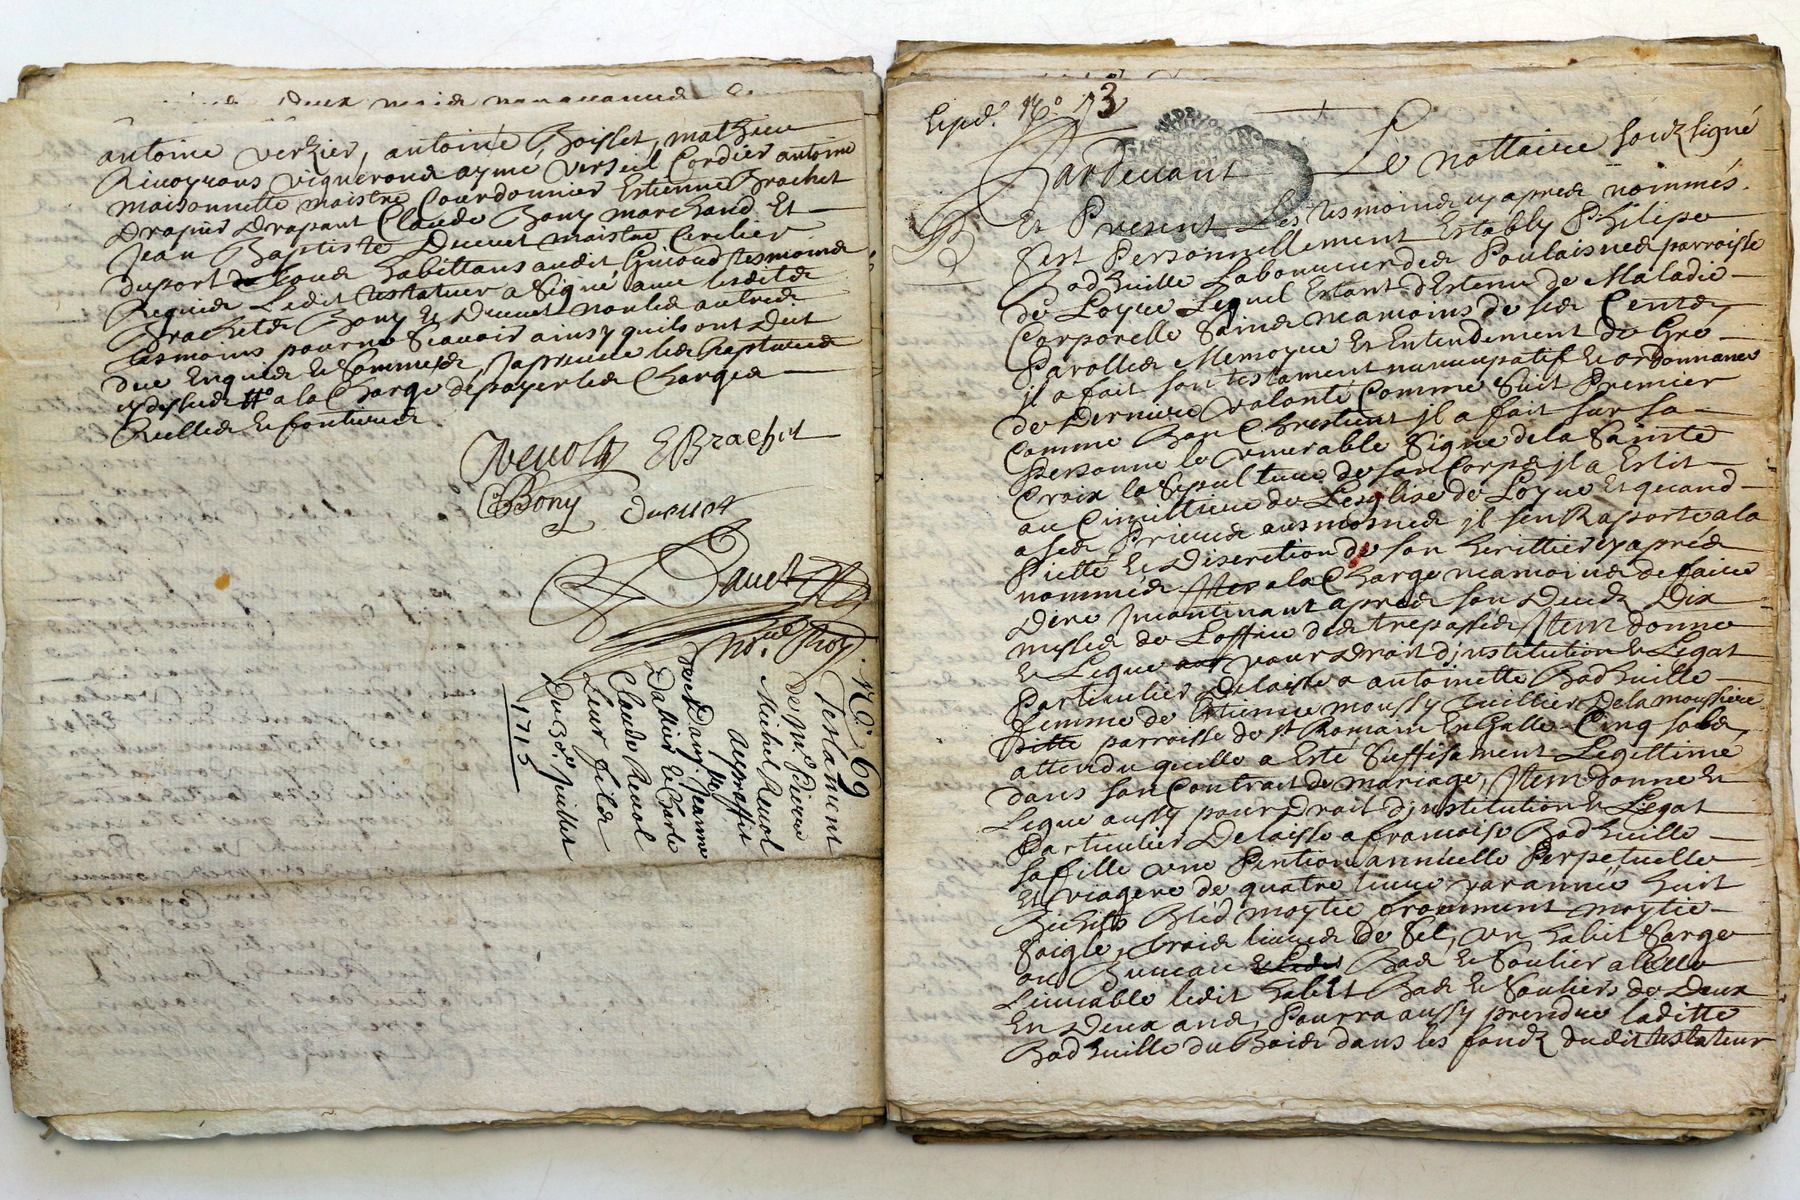 antoine verzier, antoine Boislet, mathieu
vigneron aymé verseil Cordier antoine
maisonnette maistre Courdonnier Estienne Brachet
Drapier Drapant Claude Bony marchand Et
Jean Baptiste Ducret maistre
du port habittans audit Tesmoins
Requis Ledit testateur a signé avec lesdits
Brachet Bony Et Ducret non les autres
tesmoins pour ne Scavoir ainsy quils ont Dit
de ce Enquis Et Sommés
cy dessus a la Charge de payer les Charges
Reelles Et fontieres
E Brachet
CBony Ducret
No. Roy.
No. 69
Testament
de Mre Pierre
Michel Revol
Jeanne
Dallier Et Charle
Claude Revol
Leur fils
Du 30e. Juillet
1715
Exped. No 73
Pardevant Le nottaire souz signé
Et Present Les tesmoins cy apres nommés
fust Personnellement Estably Philipe
Badhuille Laboureur des Poulaisnes parroisse
de Loyre Lequel Estant destenu de Maladie
Corporelle Sains neamoins de ses Cents
Parolles Memoyre Et Entendement de Gré
jl a fait son testament nuncupatif Et ordonnance
de Derniere volonté Comme Suit Premier
Comme Bon Chrestient jl a fait sur sa
Personne le venerable Signe de la Sainte
Croix la Sepulture de son Corps jl a Eslit
au Cimittiere de Leglise de Loyre Et quand
a ses Prieres ausmosnes jl sen Raporte a la
Pietté Et Discretion de son herittier cy apres
nommés a la Charge neamoins de faire
Dire Jncontinant apres son Deces Dix
messes de Loffice des trepassés Jtem donne
Et Legue pour Droit djnstitution Et Legat
Particulier Delaisse a antoinette Badhuille
femme de Estienne moussy tuillier De la moussiere
ditte parroisse de St Romain En Galle Cinq solds
attendu quelle a Esté Suffisament Legittime
dans son Contrait de mariage, Jtem donne Et
Legue aussy pour Droit djnstitution Et Legat
Particulier Delaisse a francoise Badhuille
sa fille une Pention annuelle Perpetuelle
Et viagere de quatre par année huit
Bichets Bled moytié froument moytié
Soigle, trois livres De Sel, un habit Sarge
ou Bureau Bas Et Soulier a Elle
ledit habit Bas Et Souliers de Deux
En Deux ans, Pourra aussy prendre laditte
Badhuille du Bois dans les fondz dudit testateur